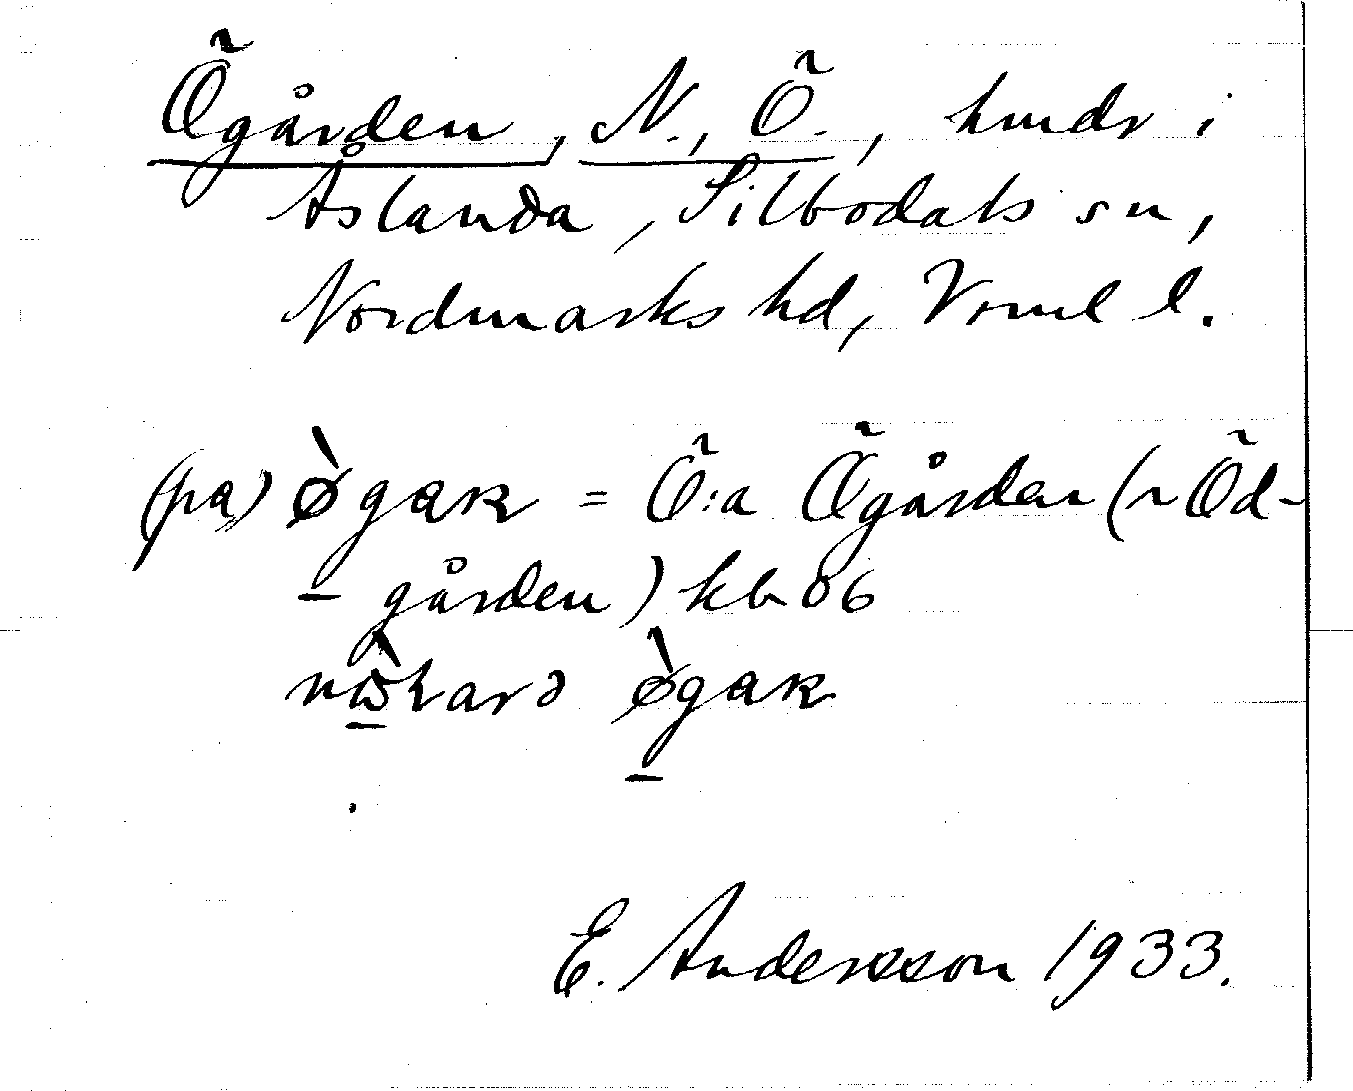 Ögården, N., Ö., hmdr i
Åslanda, Silbodals sn,
Nordmarks hd, Vrml l.
(pa) ø̀gaʀ = Ö:a Ögården (~ Öd-
gården) kb 06
ø̀gaʀ
E. Andersson 1933.